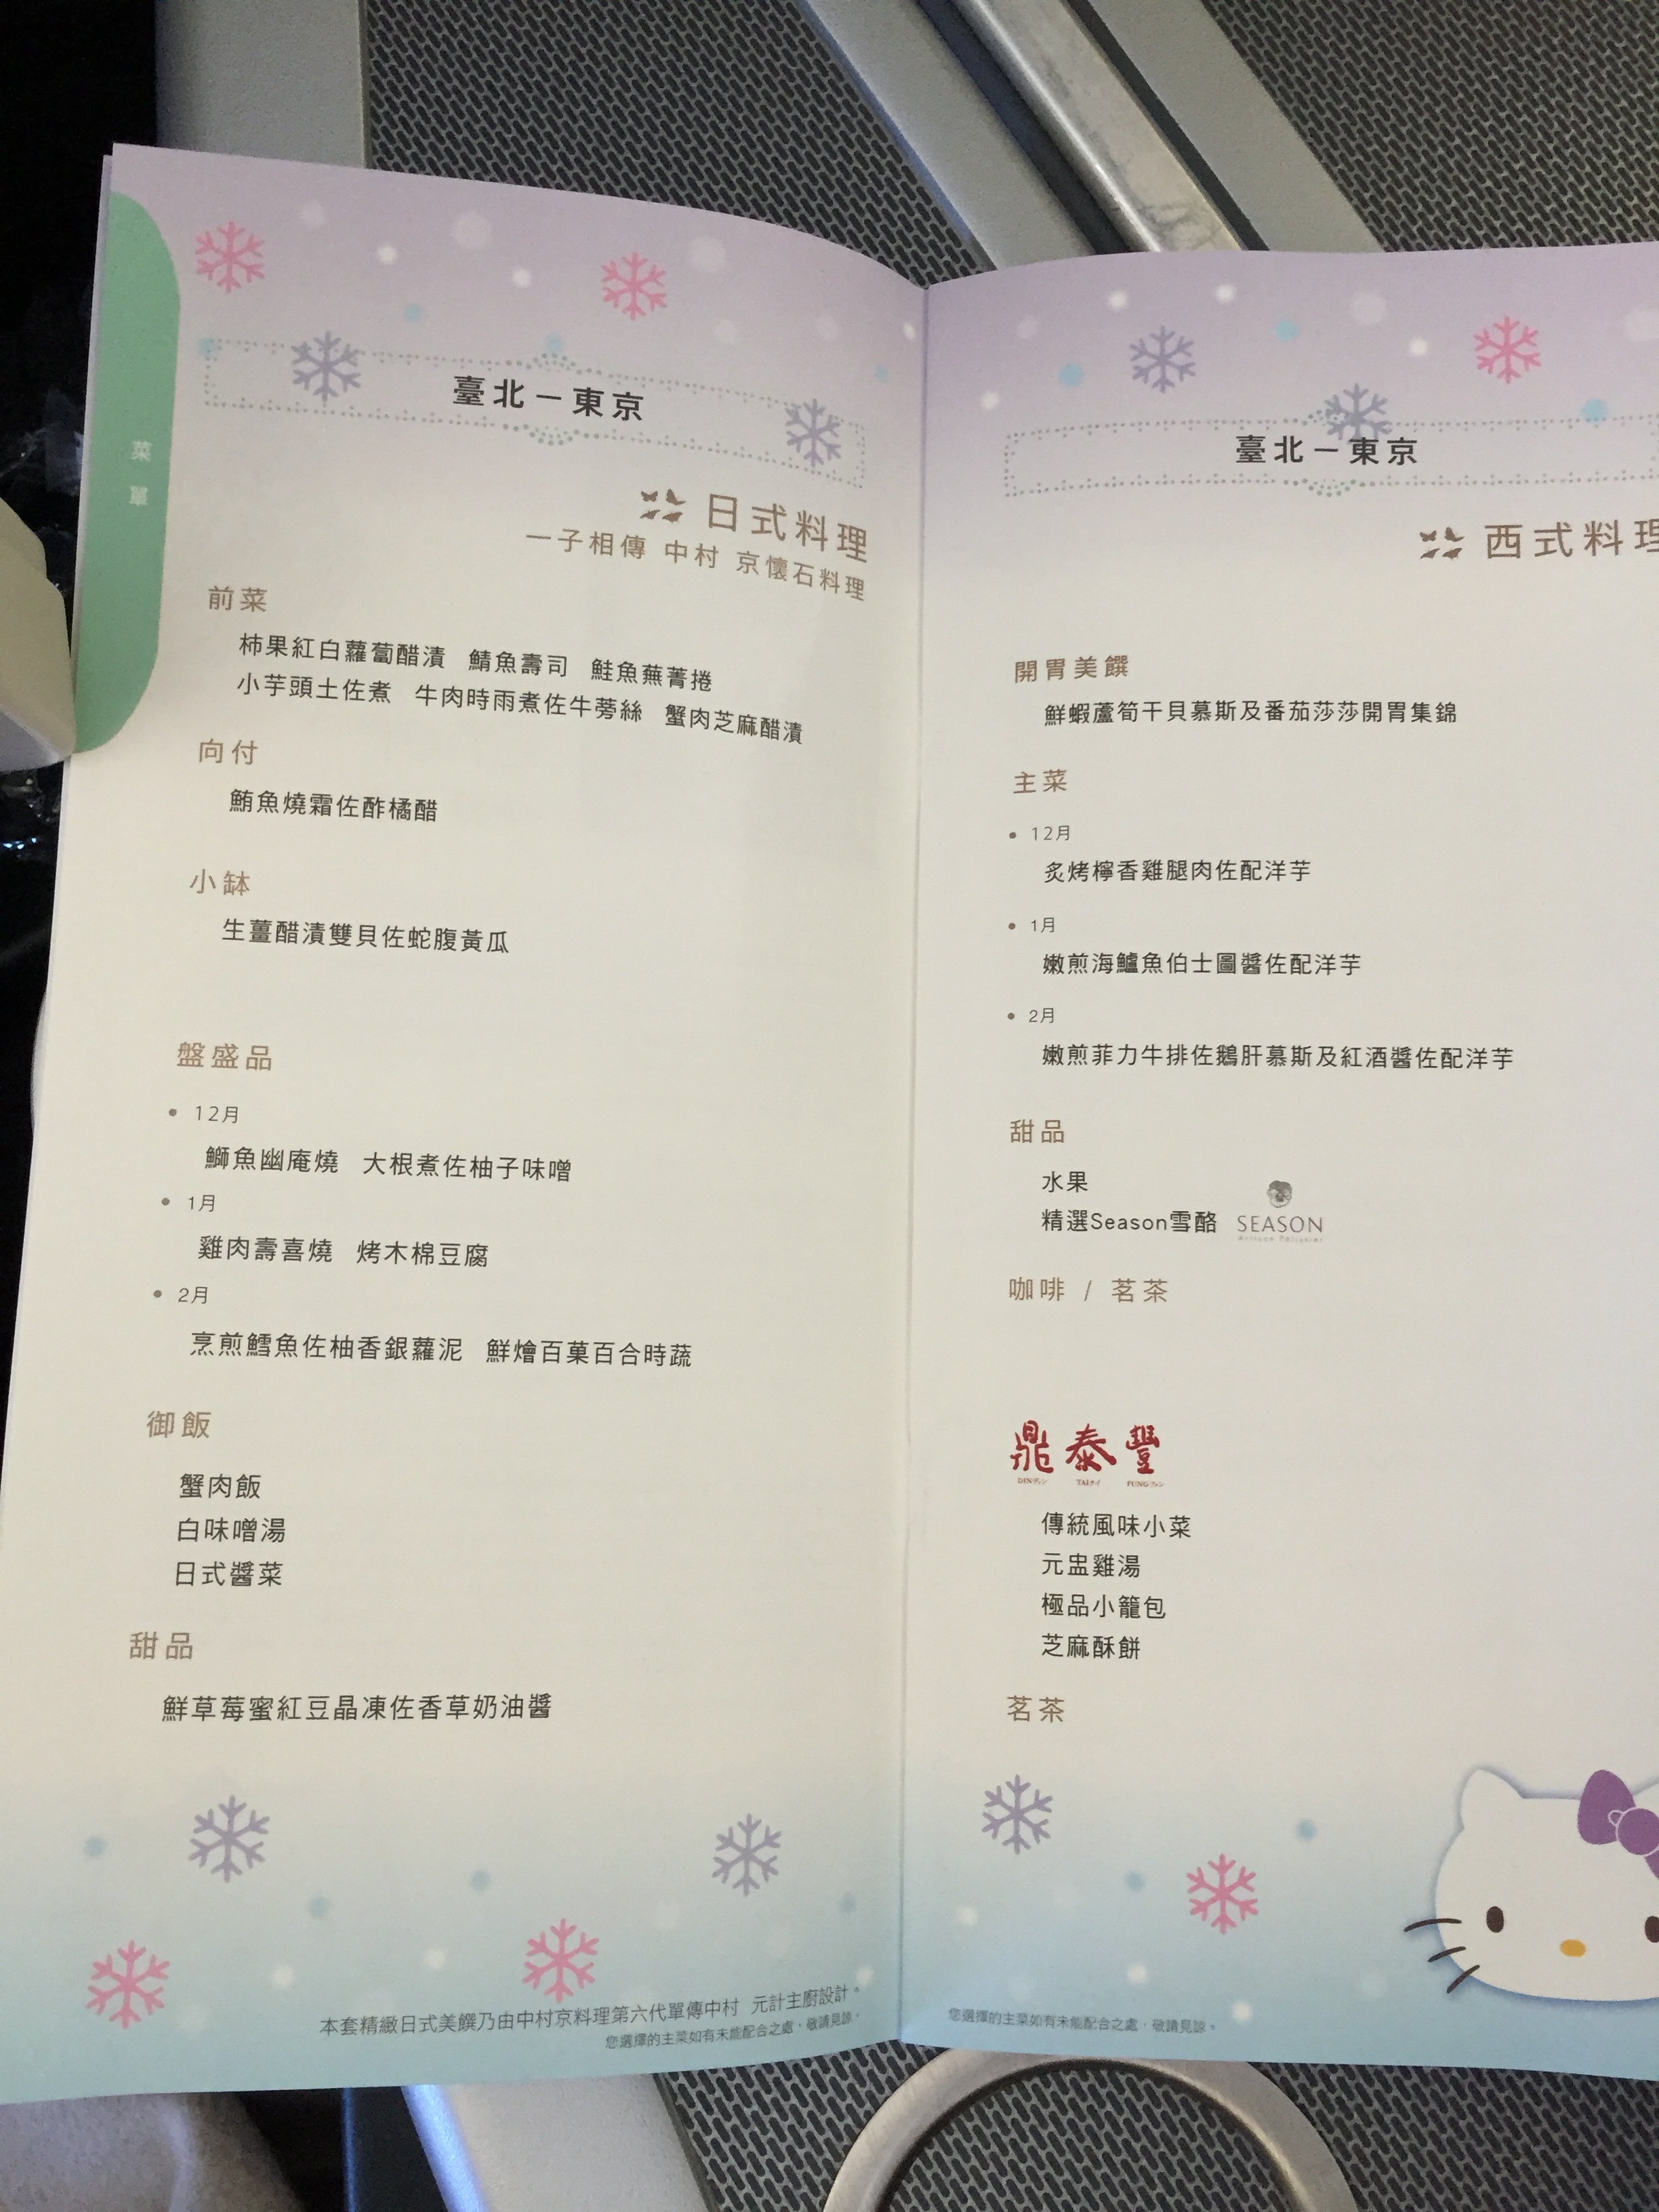 菜單
臺北－東京
日式料理
一子相傳 中村 京懷石料理
前菜
柿果紅白蘿蔔醋漬 鯖魚壽司 鮭魚蕪菁捲
小芋頭土佐煮 牛肉時雨煮佐牛蒡絲 蟹肉芝麻醋漬
向付
鮪魚燒霜佐酢橘醋
小缽
生薑醋漬雙貝佐蛇腹黃瓜
盤盛品
• 12月
鰤魚幽庵燒 大根煮佐柚子味噌
• 1月
雞肉壽喜燒 烤木棉豆腐
• 2月
烹煎鱈魚佐柚香銀蘿泥 鮮燴百菓百合時蔬
御飯
蟹肉飯
白味噌湯
日式醬菜
甜品
鮮草莓蜜紅豆晶凍佐香草奶油醬
本套精緻日式美饌乃由中村京料理第六代單傳中村 元計主廚設計。
您選擇的主菜如有未能配合之處，敬請見諒。
臺北－東京
西式料理
開胃美饌
鮮蝦蘆筍干貝慕斯及番茄莎莎開胃集錦
主菜
• 12月
炙烤檸香雞腿肉佐配洋芋
• 1月
嫩煎海鱸魚伯士圖醬佐配洋芋
• 2月
嫩煎菲力牛排佐鵝肝慕斯及紅酒醬佐配洋芋
甜品
水果
精選Season雪酪 SEASON
Artisan Pâtissier
咖啡 / 茗茶
鼎泰豐
DINディン TAIタイ FUNGフォン
傳統風味小菜
元盅雞湯
極品小籠包
芝麻酥餅
茗茶
您選擇的主菜如有未能配合之處，敬請見諒。